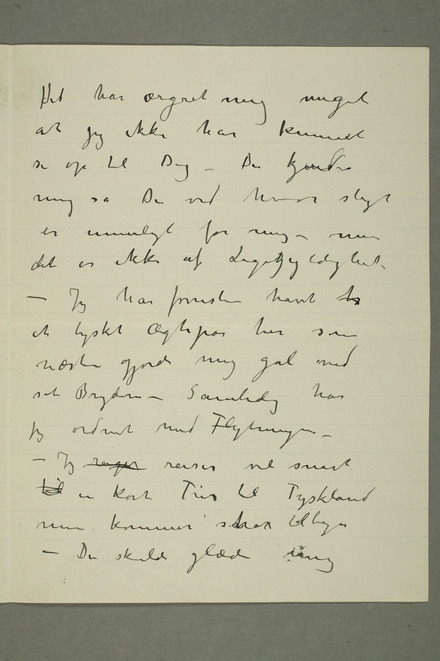 Det har ærgret mig meget
at jeg ikke har kunnet
se op til Dig – Du kjender
mig saa Du ved hvor sligt
er umuligt for mig – men
det er ikke af Ligegyldighed.
– Jeg har foresten havt
et tyskt Ægtepar her som
næsten gjorde mig gal med
sit Bryderi – Samtidig har
jeg ordnet med Flytningen –
– Jeg reiser vel snart
en kort Trip til Tyskland
men kommer snar tilbage
– Du skulde glæde mig